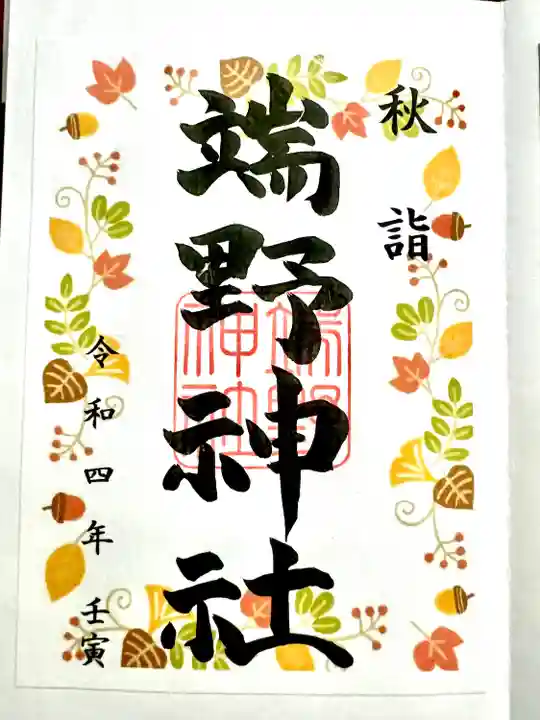 秋詣
端野神社
端野神社
令和四年 壬寅